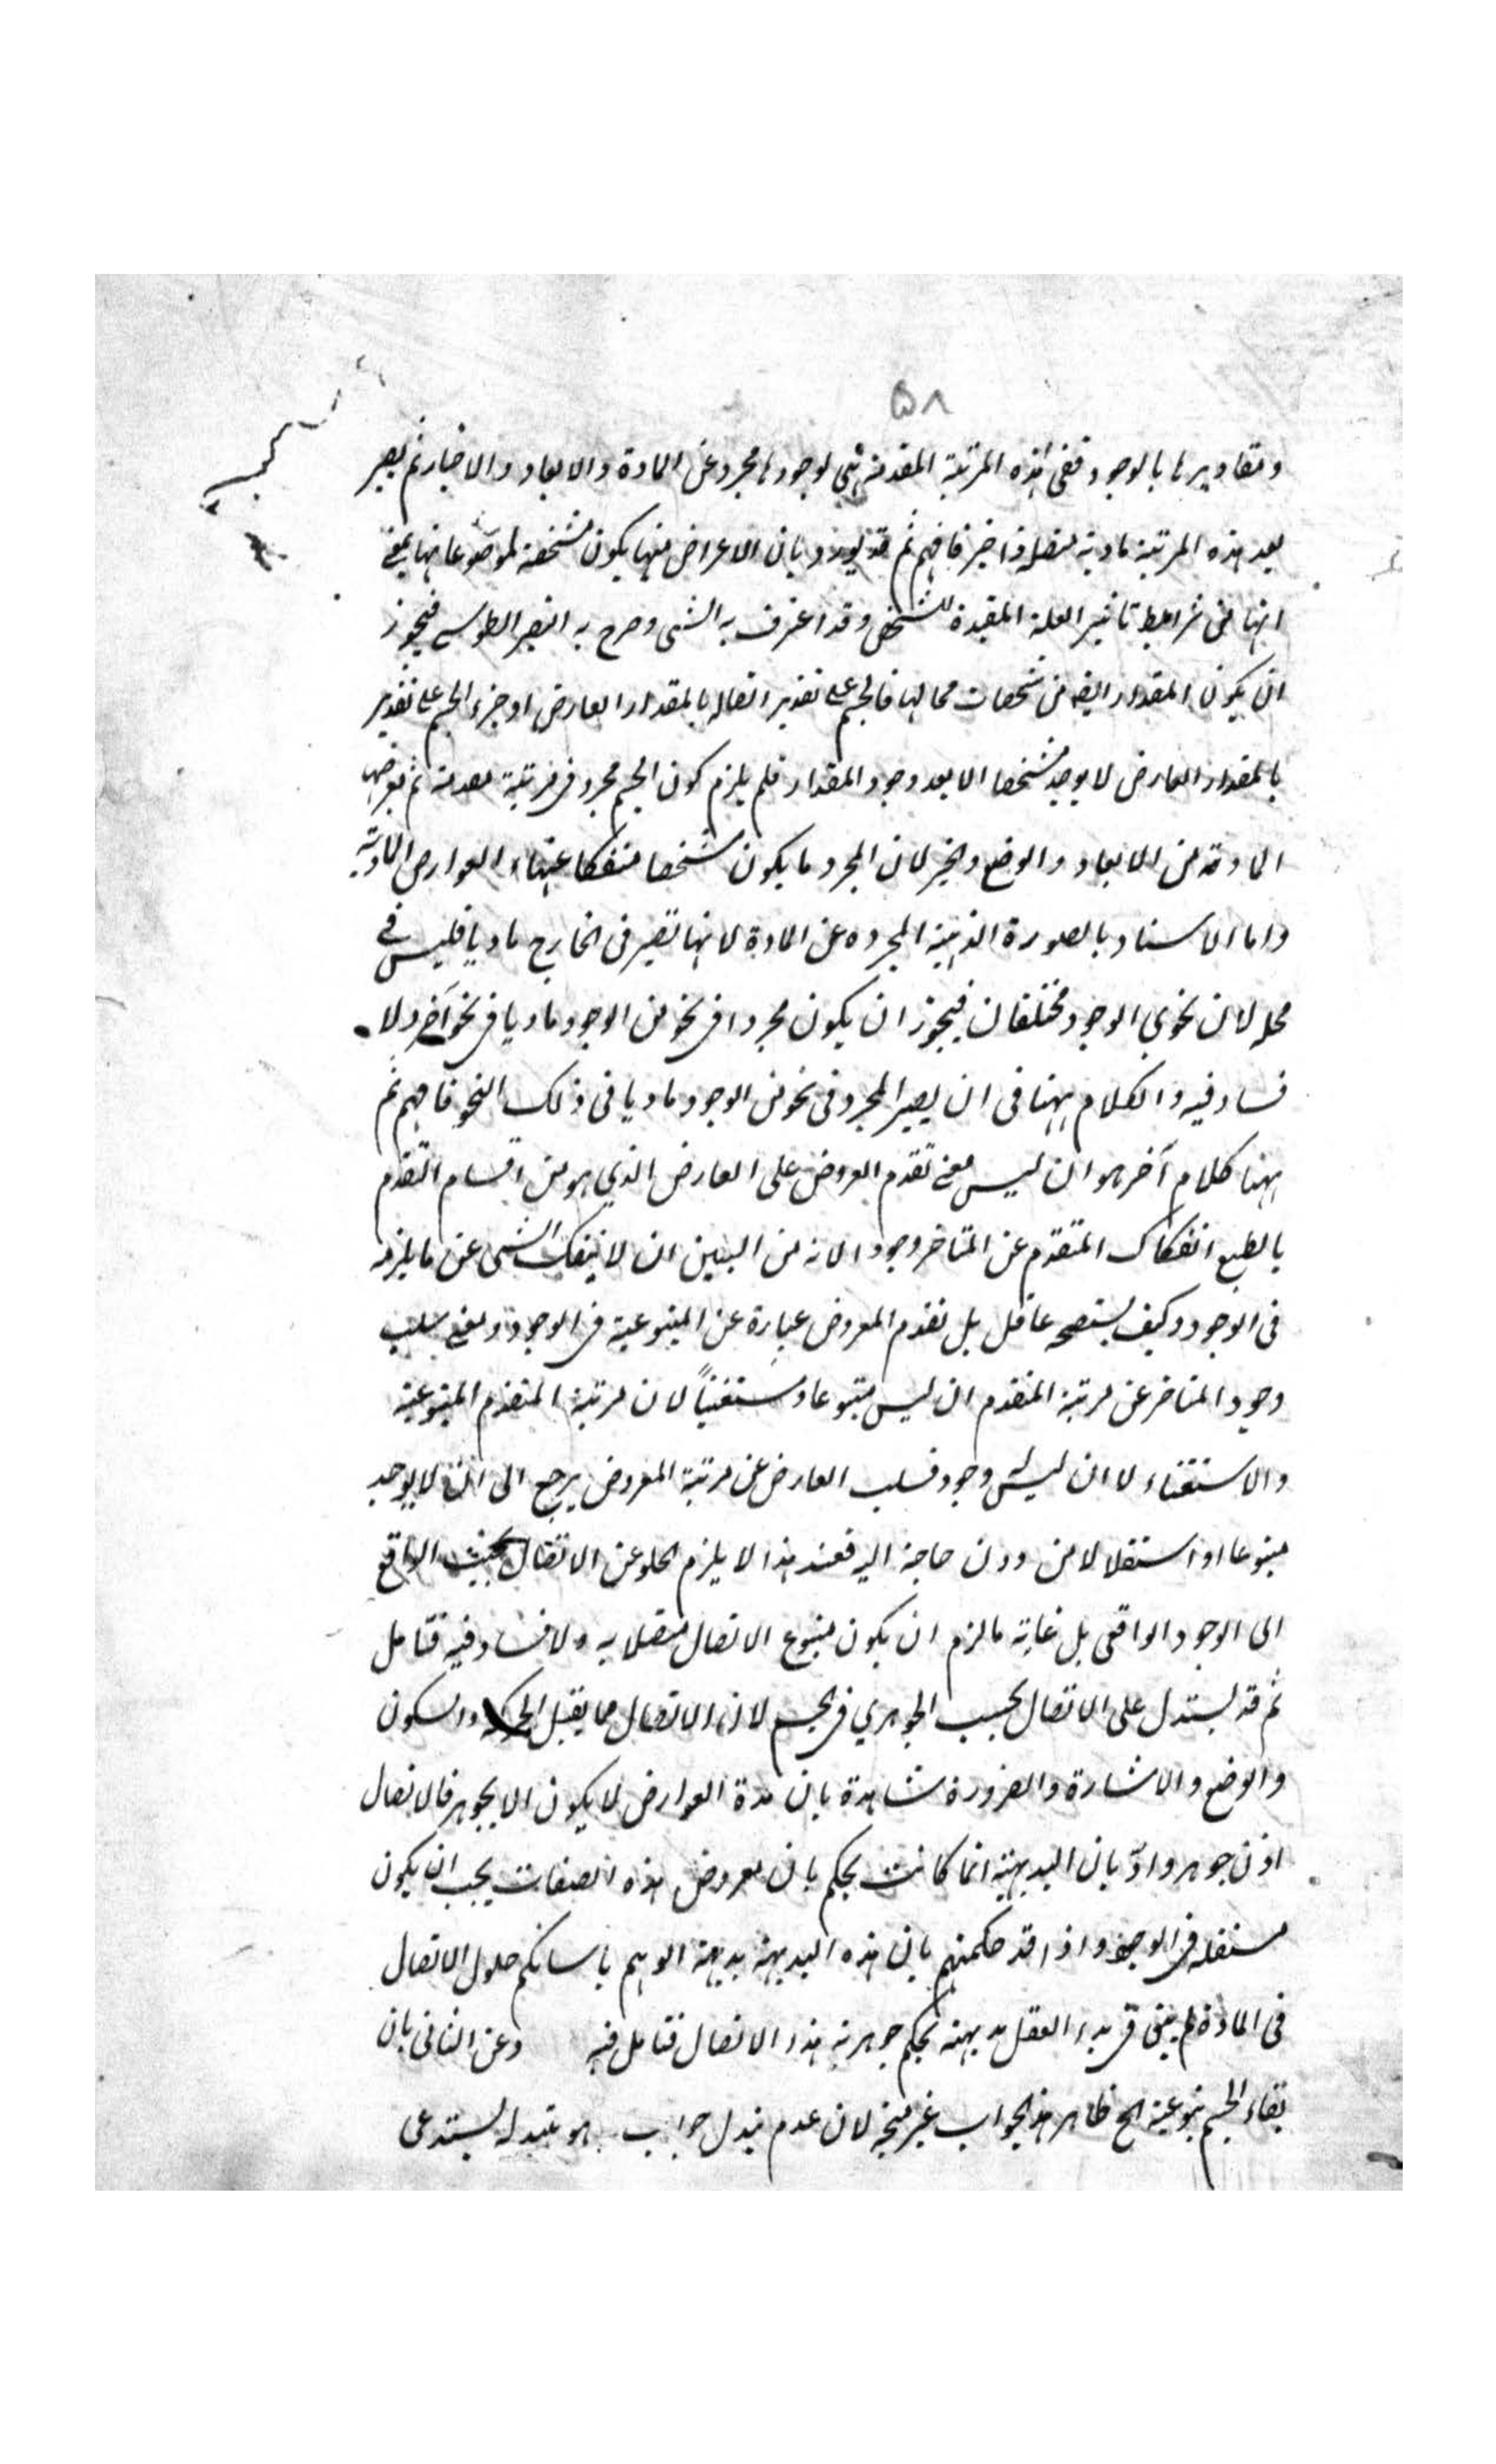 ٥٨
ومقاديرها بالوجود ففى هذه المرتبة المقدمة هى لوجودها مجرد عن المادة والابعاد والاخبار ثم يصير
بعد هذه المرتبة مادية متصلة فافهم ثم قد يورد بان الاعراض منها يكون مشخصة لموضوعاتها بمعنى
انها من شرايط تاثير العلة المفيدة للشخص وقد اعترف به الشى وصرح به النصير الطوسى فيجوز
ان يكون المقدار ايضه من مشخصات محالها فالجسم على تقدير اتصاله بالمقدار العارض او جزء الجسم على تقدير
بالمقدار العارض لا يوجد مشخصا الا بعد وجود المقدار فلم يلزم كون الجسم مجرد فى مرتبة ثم يعرضها
المادة من الابعاد والوضع والحيز لان المجرد ما يكون مشخصا منفكا عنها العوارض المادية
واما الاسناد بالصورة الذهنية المجرده عن المادة لانها تصير فى الخارج ماديا فليس فى
محله لان نحوى الوجود مختلفان فيجوز ان يكون مجردا فى نحو من الوجود ماديا فى نحو آخر ولا
فساد فيه والكلام ههنا فى ان يصير المجرد فى نحو من الوجود ماديا فى ذلك النحو فافهم ثم
ههنا كلام آخر هو ان ليس معنى تقدم العروض على العارض الذي هو من اقسام التقدم
بالطبع انفكاك المتقدم عن المتاخر وجودا لانه من البين ان لا ينفك الشى عن ما يلزمه
فى الوجود وكيف يستصحه عاقل بل تقدم المعروض عبارة عن المتبوعية فى الوجود ومعنى سلب
وجود المتاخر عن مرتبة المتقدم ان ليس متبوعا ومستغنياً لان مرتبة المتقدم المتبوعية
والاستغناء لا ان ليس وجود فسلب العارض عن مرتبة المعروض يرجع الى انه لا يوجد
متبوعا او استقلالا من دون حاجة اليه فعند هذا لا يلزم الخلو عن الاتصال بحيث الواقع
الى الوجود الواقعى بل غاية ما لزم ان يكون متبوع الاتصال متصلا به ولا فساد فيه فتامل
ثم قد يستدل على الاتصال بحسب الجوهري فى الجسم لان الاتصال مما يقبل الحركة والسكون
والوضع والاشارة والضرورة شاهدة بان هذة العوارض لا يكون الا بجوهر فالاتصال
اذن جوهر واورد بان البديهية انما كانت بحكم بان معروض هذه الصفات يجب ان يكون
مستقله فى الوجود واذا قد حكمتم بان هذه البديهة بديهة الوهم حلول الاتصال
فى المادة لم يبق فى يد العقل بديهة بحكم جوهرية هذا الاتصال فتامل فيه وعن الثانى بان
بقاء الجسم بنوعية الخ ظاهر هذا الجواب غير متجه لان عدم تبدل جواب هو عند له يستدعى